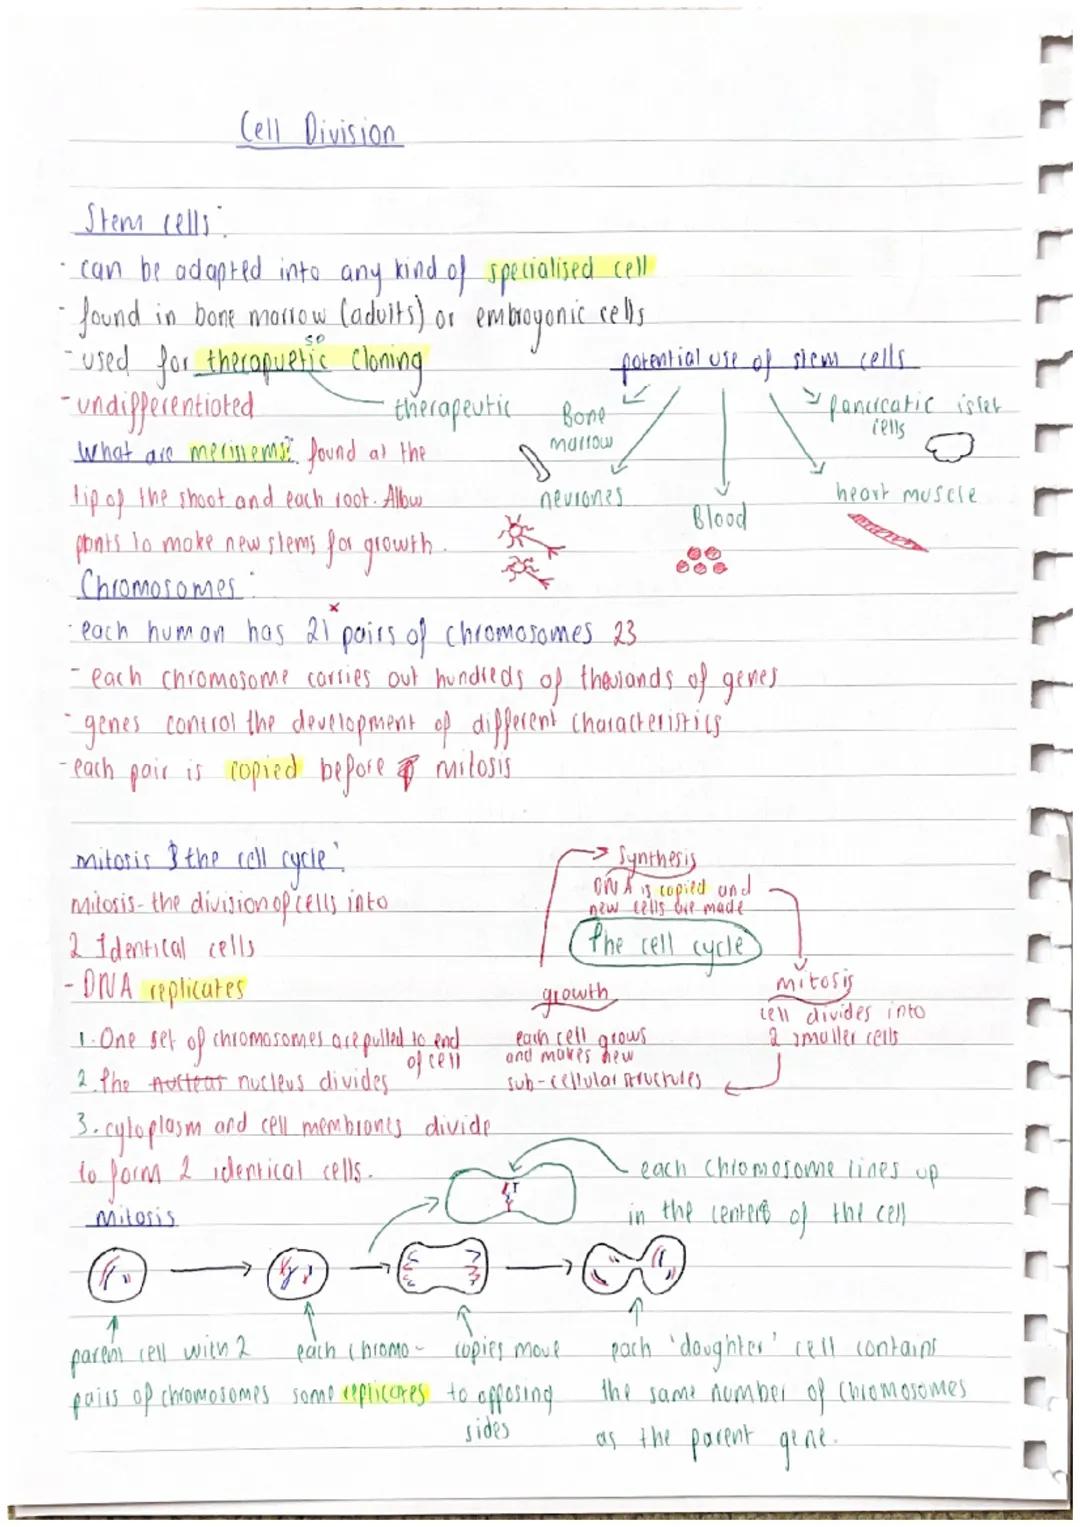 Cell Division
Stem cells:
- can be adapted into any kind of specialised cell
- found in bone marrow (adults) or embroyonic cells
- used for therapuetic cloning
sp
therapeutic
- undifferentiated
What are meristems? found at the
tip of the shoot and each root. Allow
plants to make new stems for growth.
potential use of stem cells
Bone
marrow
neurones
Blood
heart muscle
pancreatic islet
cells
Chromosomes:
- each human has 21 x pairs of chromosomes 23
- each chromosome carries out hundreds of thousands of genes
- genes control the development of different characteristics
- each pair is copied before mitosis
mitosis & the cell cycle:
mitosis- the division of cells into
2 Identical cells
- DNA replicates
1. One set of chromosomes are pulled to end
of cell
2. The nuclear nucleus divides
3. cytoplasm and cell membranes divide
to form 2 identical cells.
Synthesis
DNA is copied and
new cells are made
The cell cycle
mitosis
cell divides into
2 smaller cells
growth
each cell grows
and makes new
sub-cellular structures
mitosis
each chromosome lines up
in the center of the cell
parent cell with 2
pairs of chromosomes
each chromo-
some replicates
copies move
to opposing
sides
each 'daughter' cell contains
the same number of chromosomes
as the parent gene.